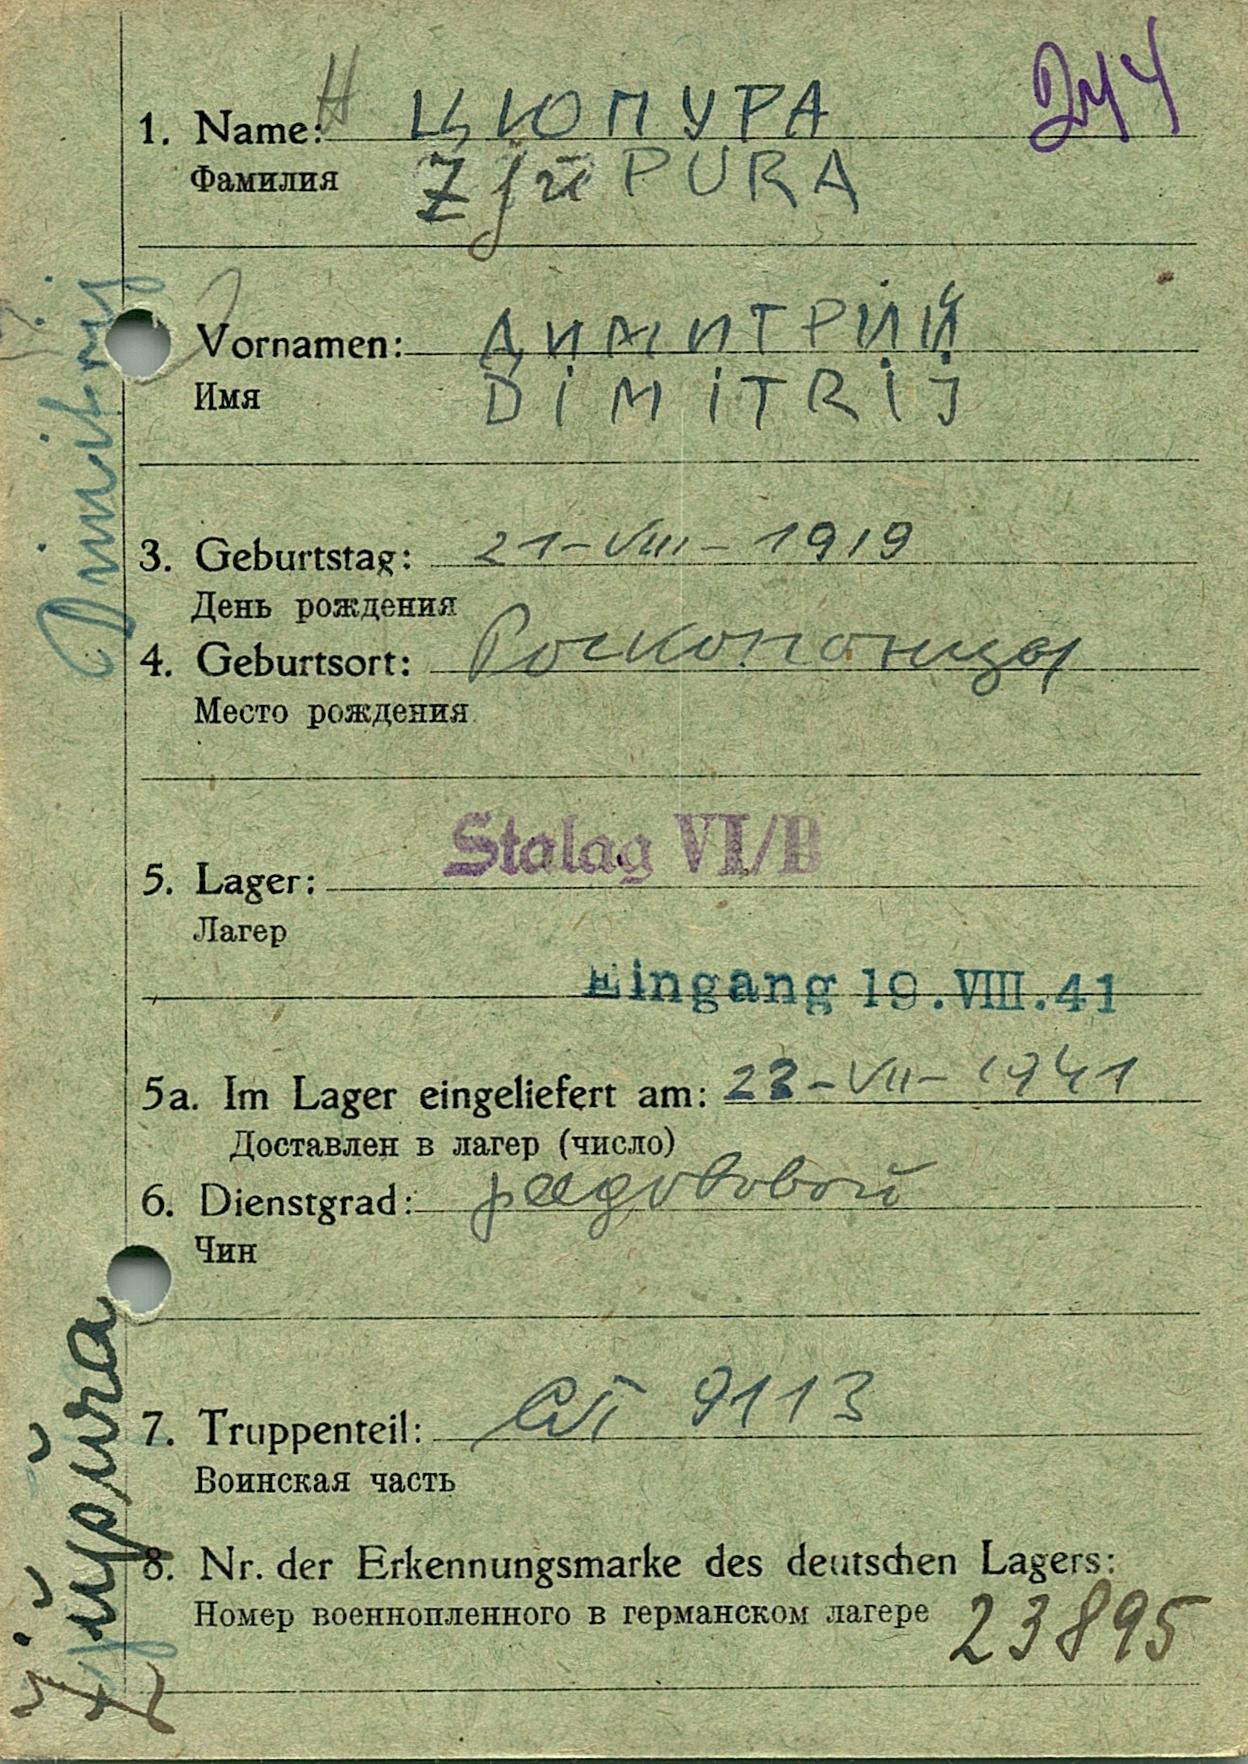 244
H
1. Name: ЦЮПУРА
Фамилия ZjüPURA
Vornamen: ДИМИТРИЙ
Имя DiMiTRiJ
3. Geburtstag: 21-VIII-1919
День рождения
4. Geburtsort: Росколонцы
Место рождения
Stalag VI/B
5. Lager:
Лагер
Eingang 19.VIII.41
5a. Im Lager eingeliefert am: 23-VII-1941
Доставлен в лагер (число)
6. Dienstgrad: рядововой
Чин
7. Truppenteil: 9113
Воинская часть
8. Nr. der Erkennungsmarke des deutschen Lagers:
Номер военнопленного в германском лагере 23895
Dimitrij
Zjupura